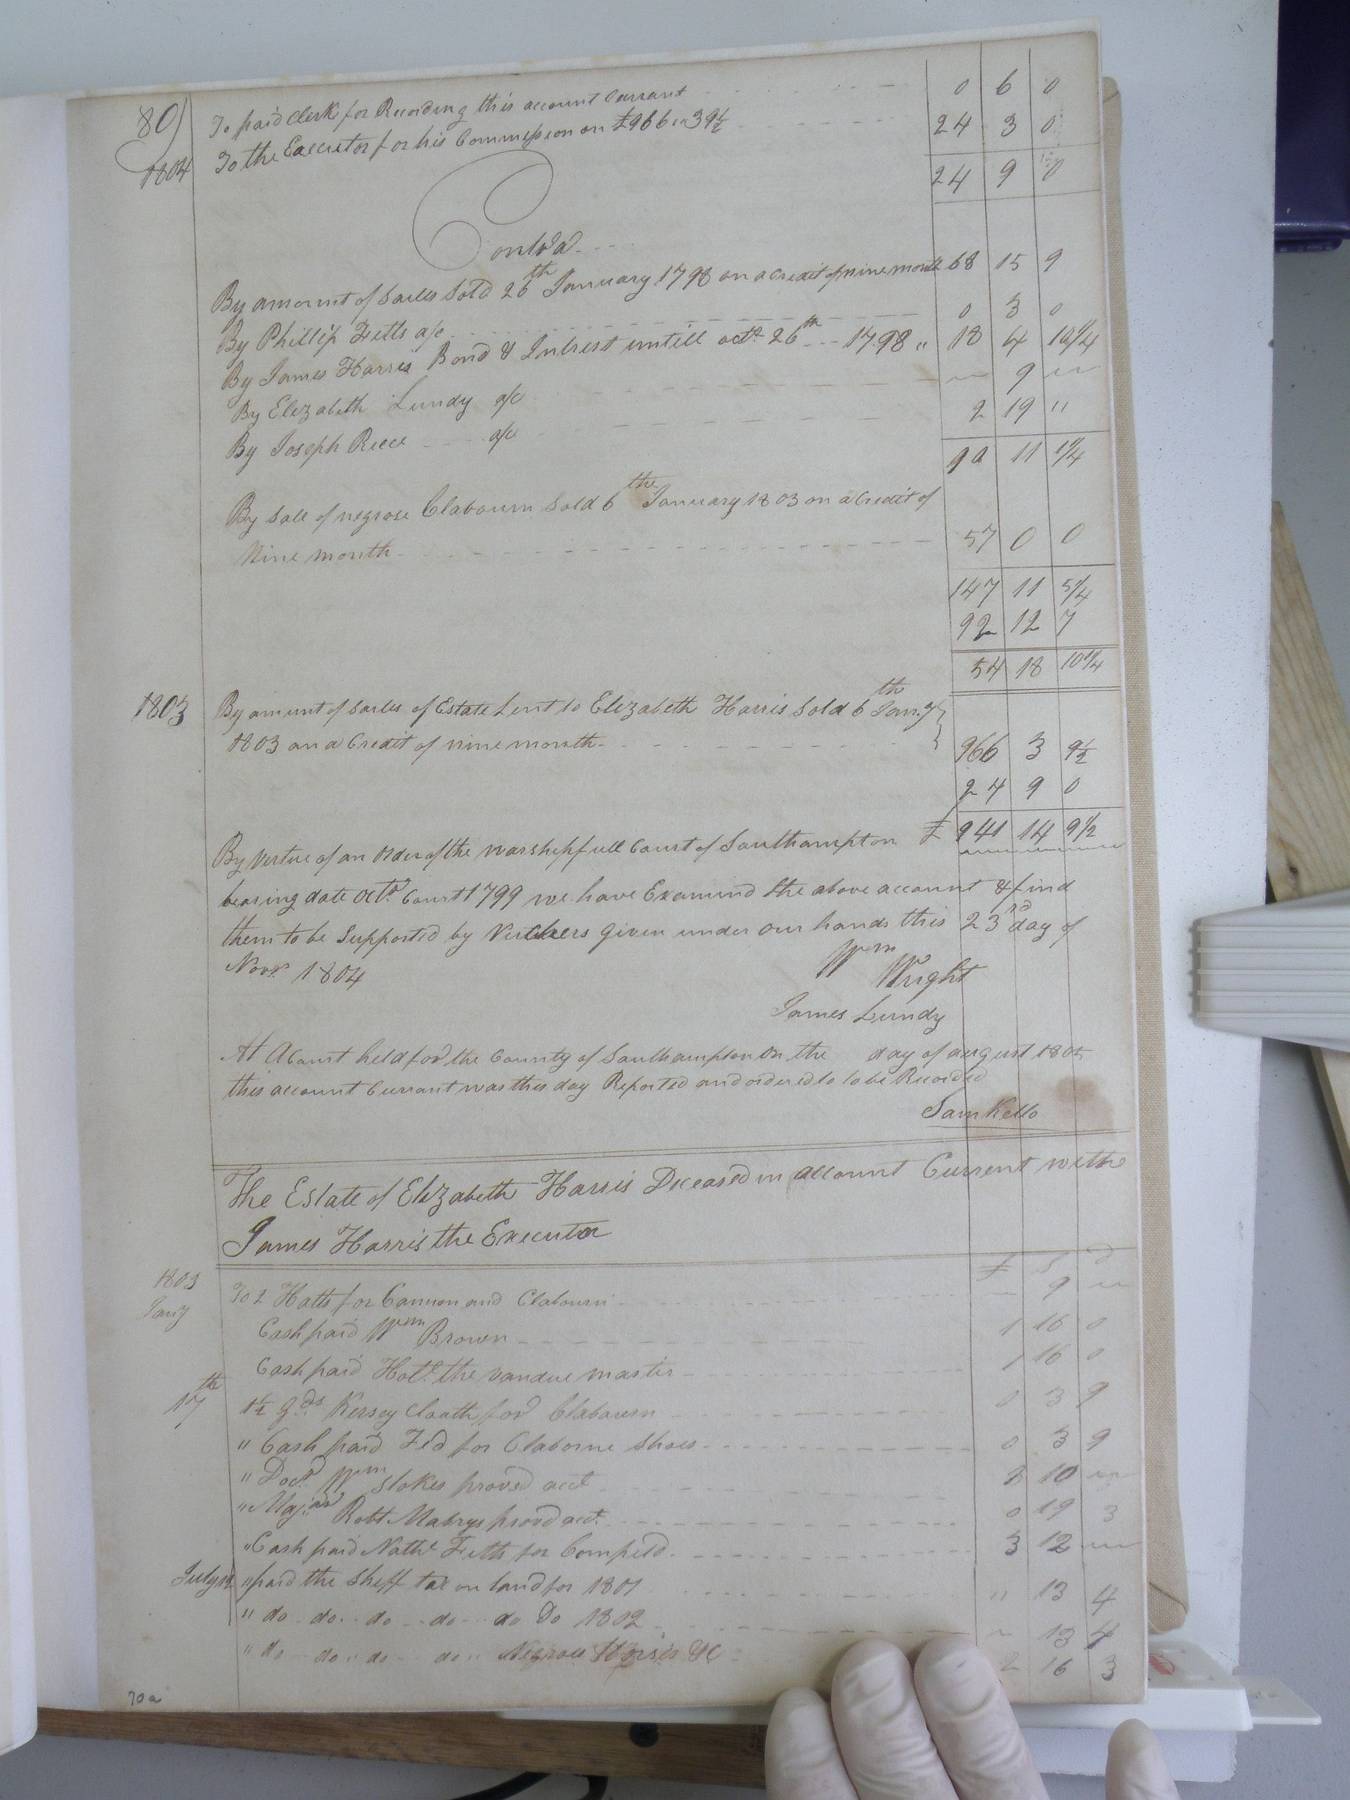 80)
To paid Clerk for Recording this account Currant 0 6 0
1804 To the Executor for his Commission on £966..3 9½ 24 3 0
24 9 0
Contra
By amount of Sailes Sold 26th January 1798 on a credit of nine month 68 15 9
By Phillip Fitts a/c 0 3 0
By James Harris Bond & Intrest untill octr 26th 1798 " 18 4 10¼
By Elizabeth Lundy a/c 9
By Joseph Reece a/c 2 19 "
90 11
By Sale of negroe Clabourn Sold 6th January 1803 on a Credit of
Nine month 57 0 0
147 11 5¼
92 12 7
54 18 10¼
1803 By amunt of Sarles of Estate Lent to Elizabeth Harris Sold 6th Jany
1803 on a Credit of nine month 966 3 9½
24 9 0
£ 941 14 9½
By vertue of an order of the worshipfull Court of Southampton
bearing date Octr Court 1799 we have Examind the above account & find
them to be Supported by Vuchers given under our hands this 23rd day of
Novr 1804
Wm Wright
James Lundy
At A Court held for the County of Southampton on the day of august 1805
this account Currant was this day Reported and ordered to to be Recorded
Sam Kello
The Estate of Elizabeth Harris Deceased in account Current with
James Harris the Executor
£ S D
1803
Jany To 2 Hatts for Cannon and Clabourn 9
Cash paid Wm Brown 1 16 0
Cash paid the vandue master 1 16 0
17th 1½ yds Kersey Cloath for Clabourn 0 3 9
" Cash paid for Claborne Shoes 0 3 9
" Doctr Wm Stokes proved acct 10
" Major Robt Mabrys provd acct 0 19 3
" Cash paid Nathl for 3 12
July " paid the Sheff tax on land for 1801 " 13 4
" do do do do do Do 1802 13 4
" do do do do Negroes Horses &C 2 16 3
70a